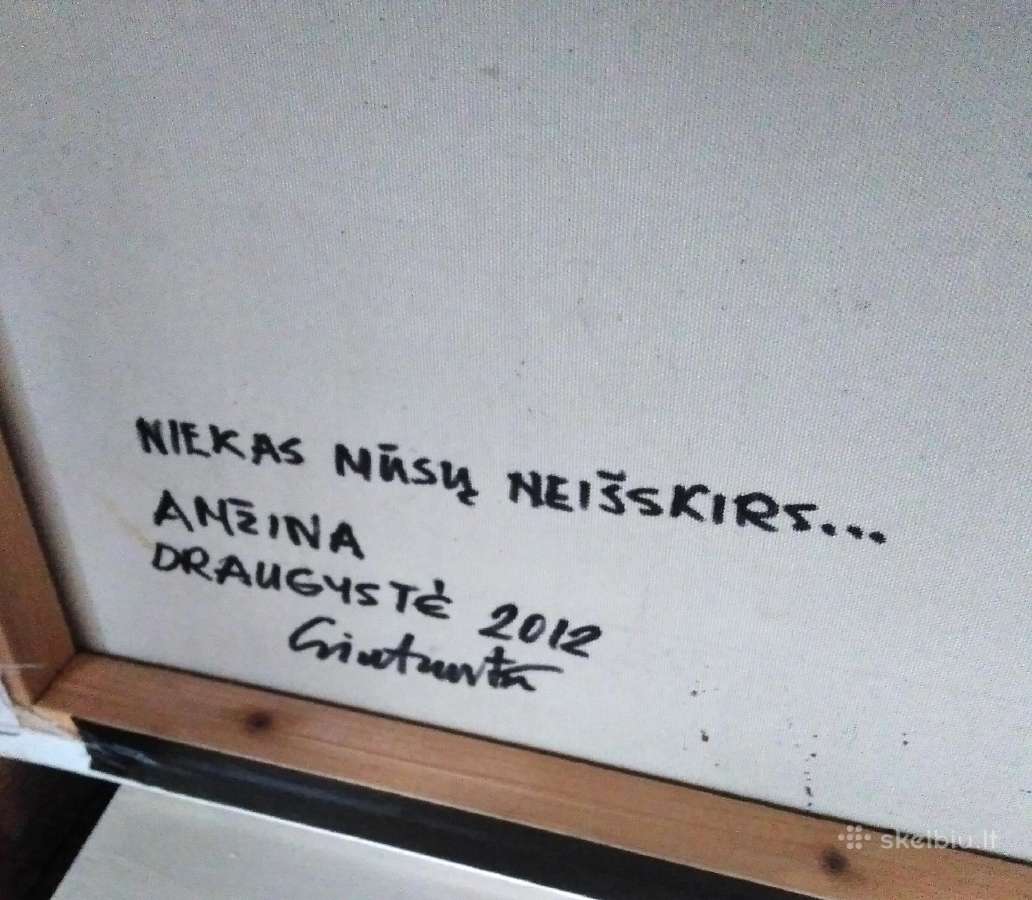 NIEKAS MŪSŲ NEIŠSKIRS...
AMŽINA
DRAUGYSTĖ 2012
skelbiu.lt